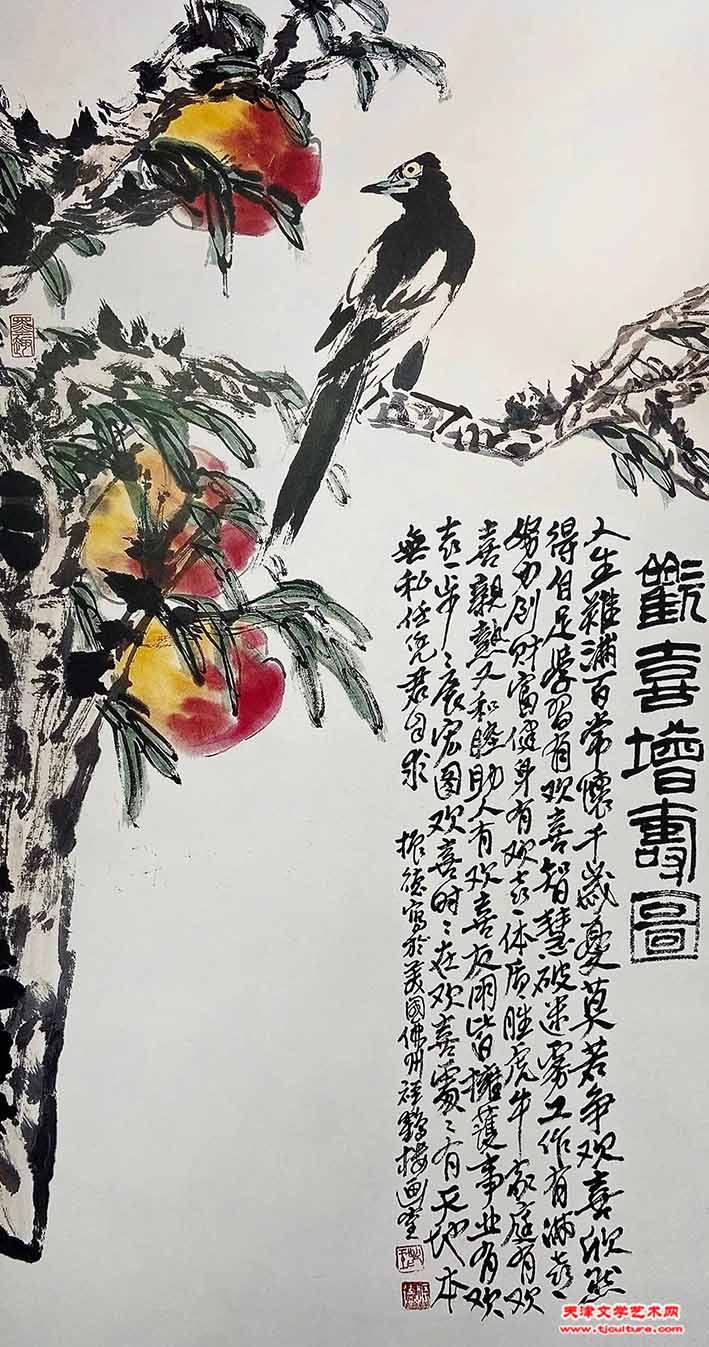 歡喜增壽圖
人生難滿百常懷千歲憂莫若争欢喜欣然
得自足學習有欢喜智慧破迷雾工作有满喜
努力创财富健身有欢喜体质胜虎牛家庭有欢
喜親熟又和睦助人有欢喜友朋皆擁護事业有欢
喜步〻展宏图欢喜时〻在欢喜處〻有天地本
無私任凭君自求 振德寫於美國佛州祥鶴楼画室
天津文学艺术网
www.tjculture.com